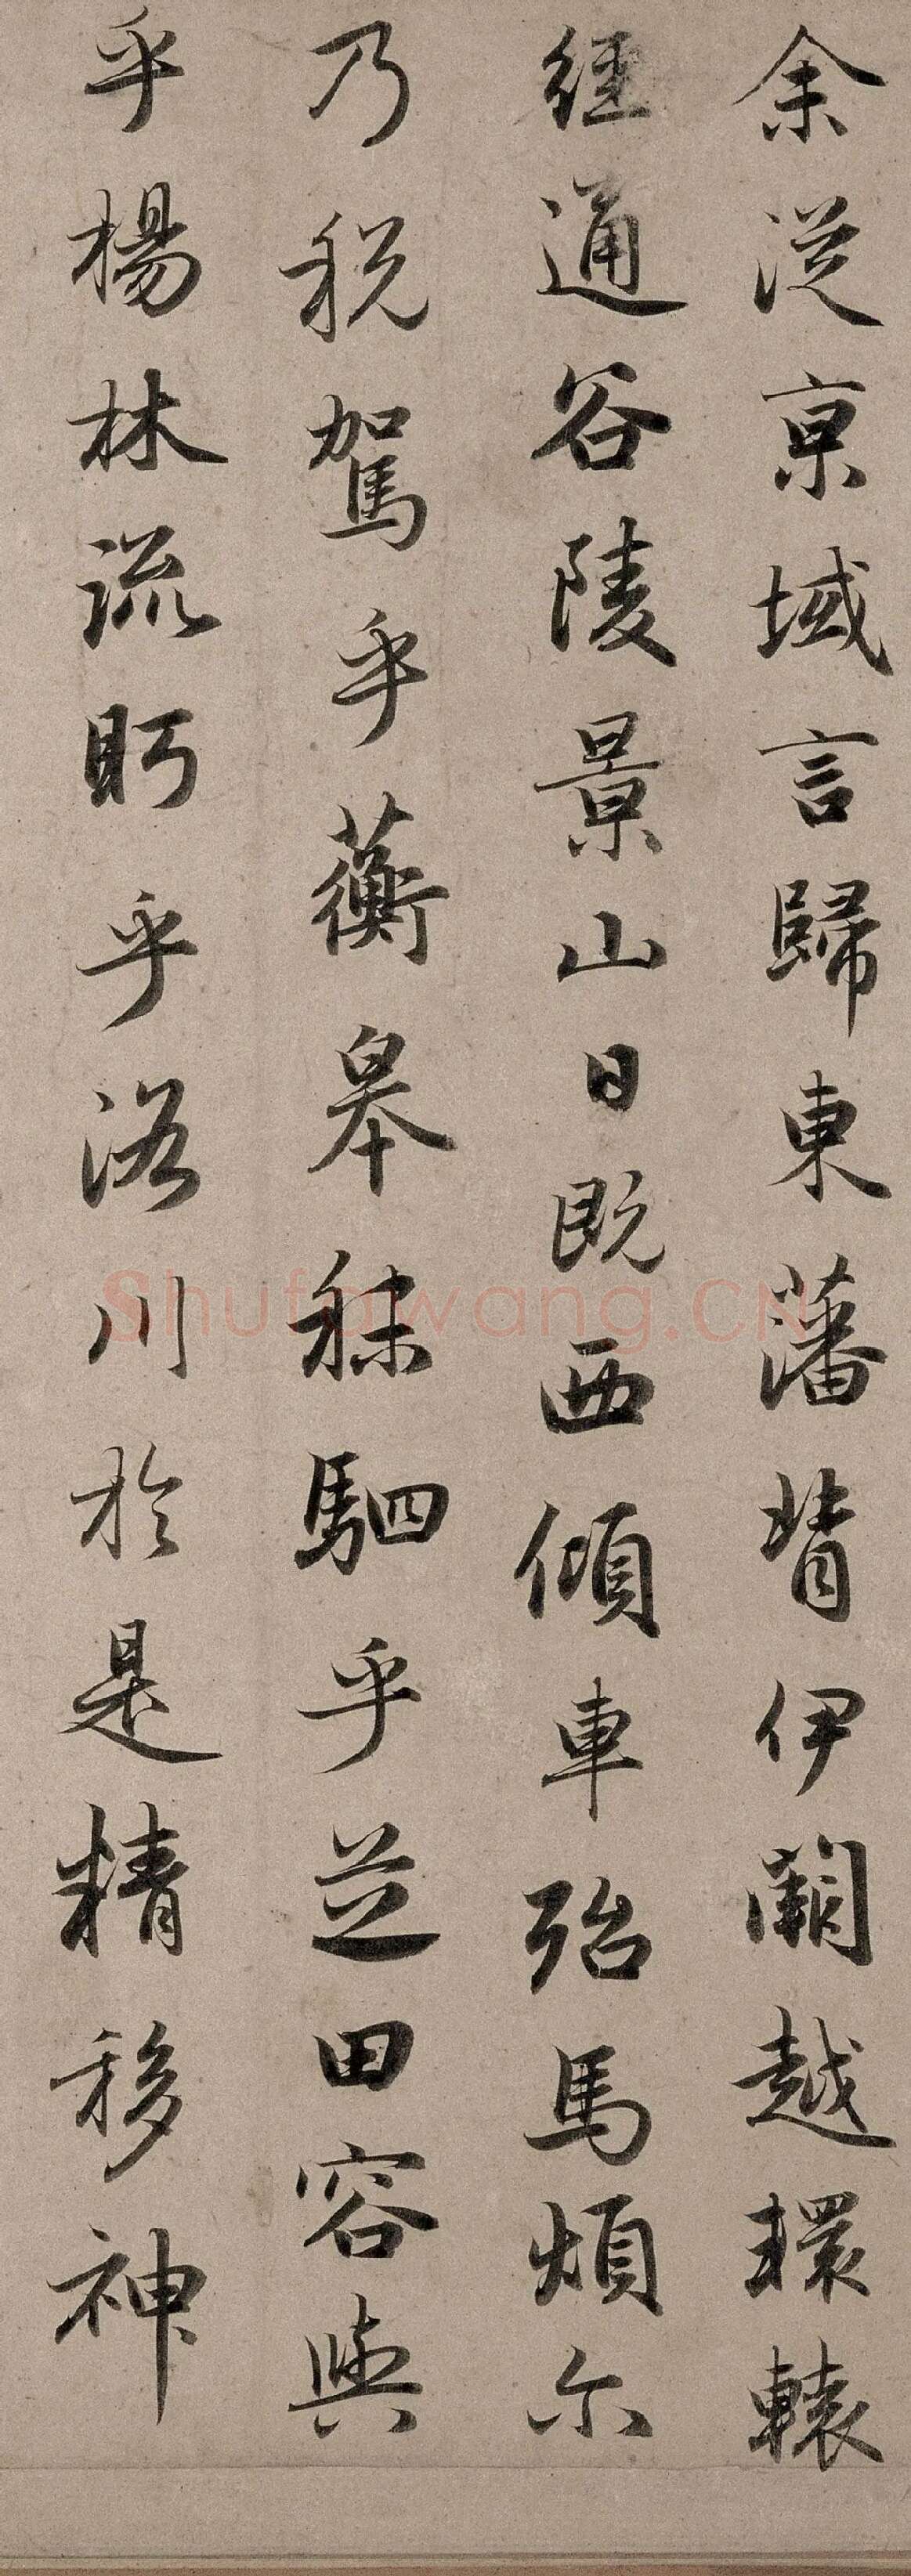 余從京域言歸東藩背伊闕越轘轅
經通谷陵景山日既西傾車殆馬煩尔
乃稅駕乎蘅皋秣駟乎芝田容與
乎楊林流眄乎洛川於是精移神
Shufawang.CN